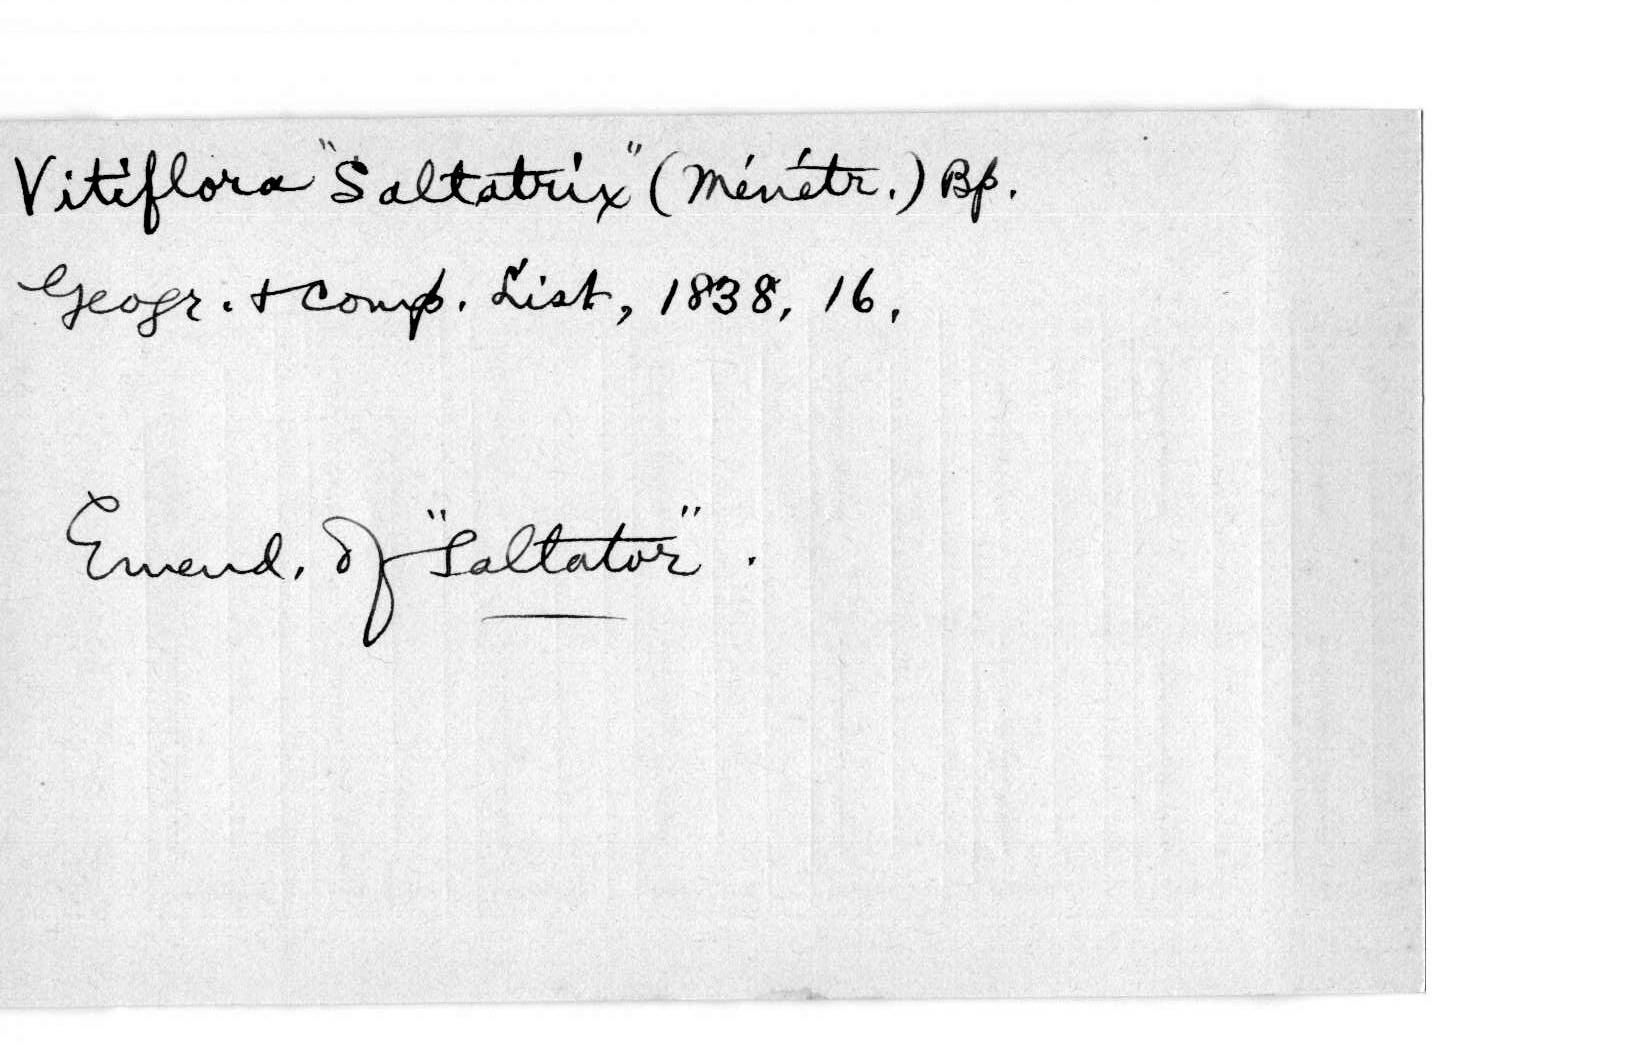 Vitiflora "Saltatrix" (Ménétr.) Bp.
Geogr. & Comp. List, 1838, 16,
Emend. of "Saltator".